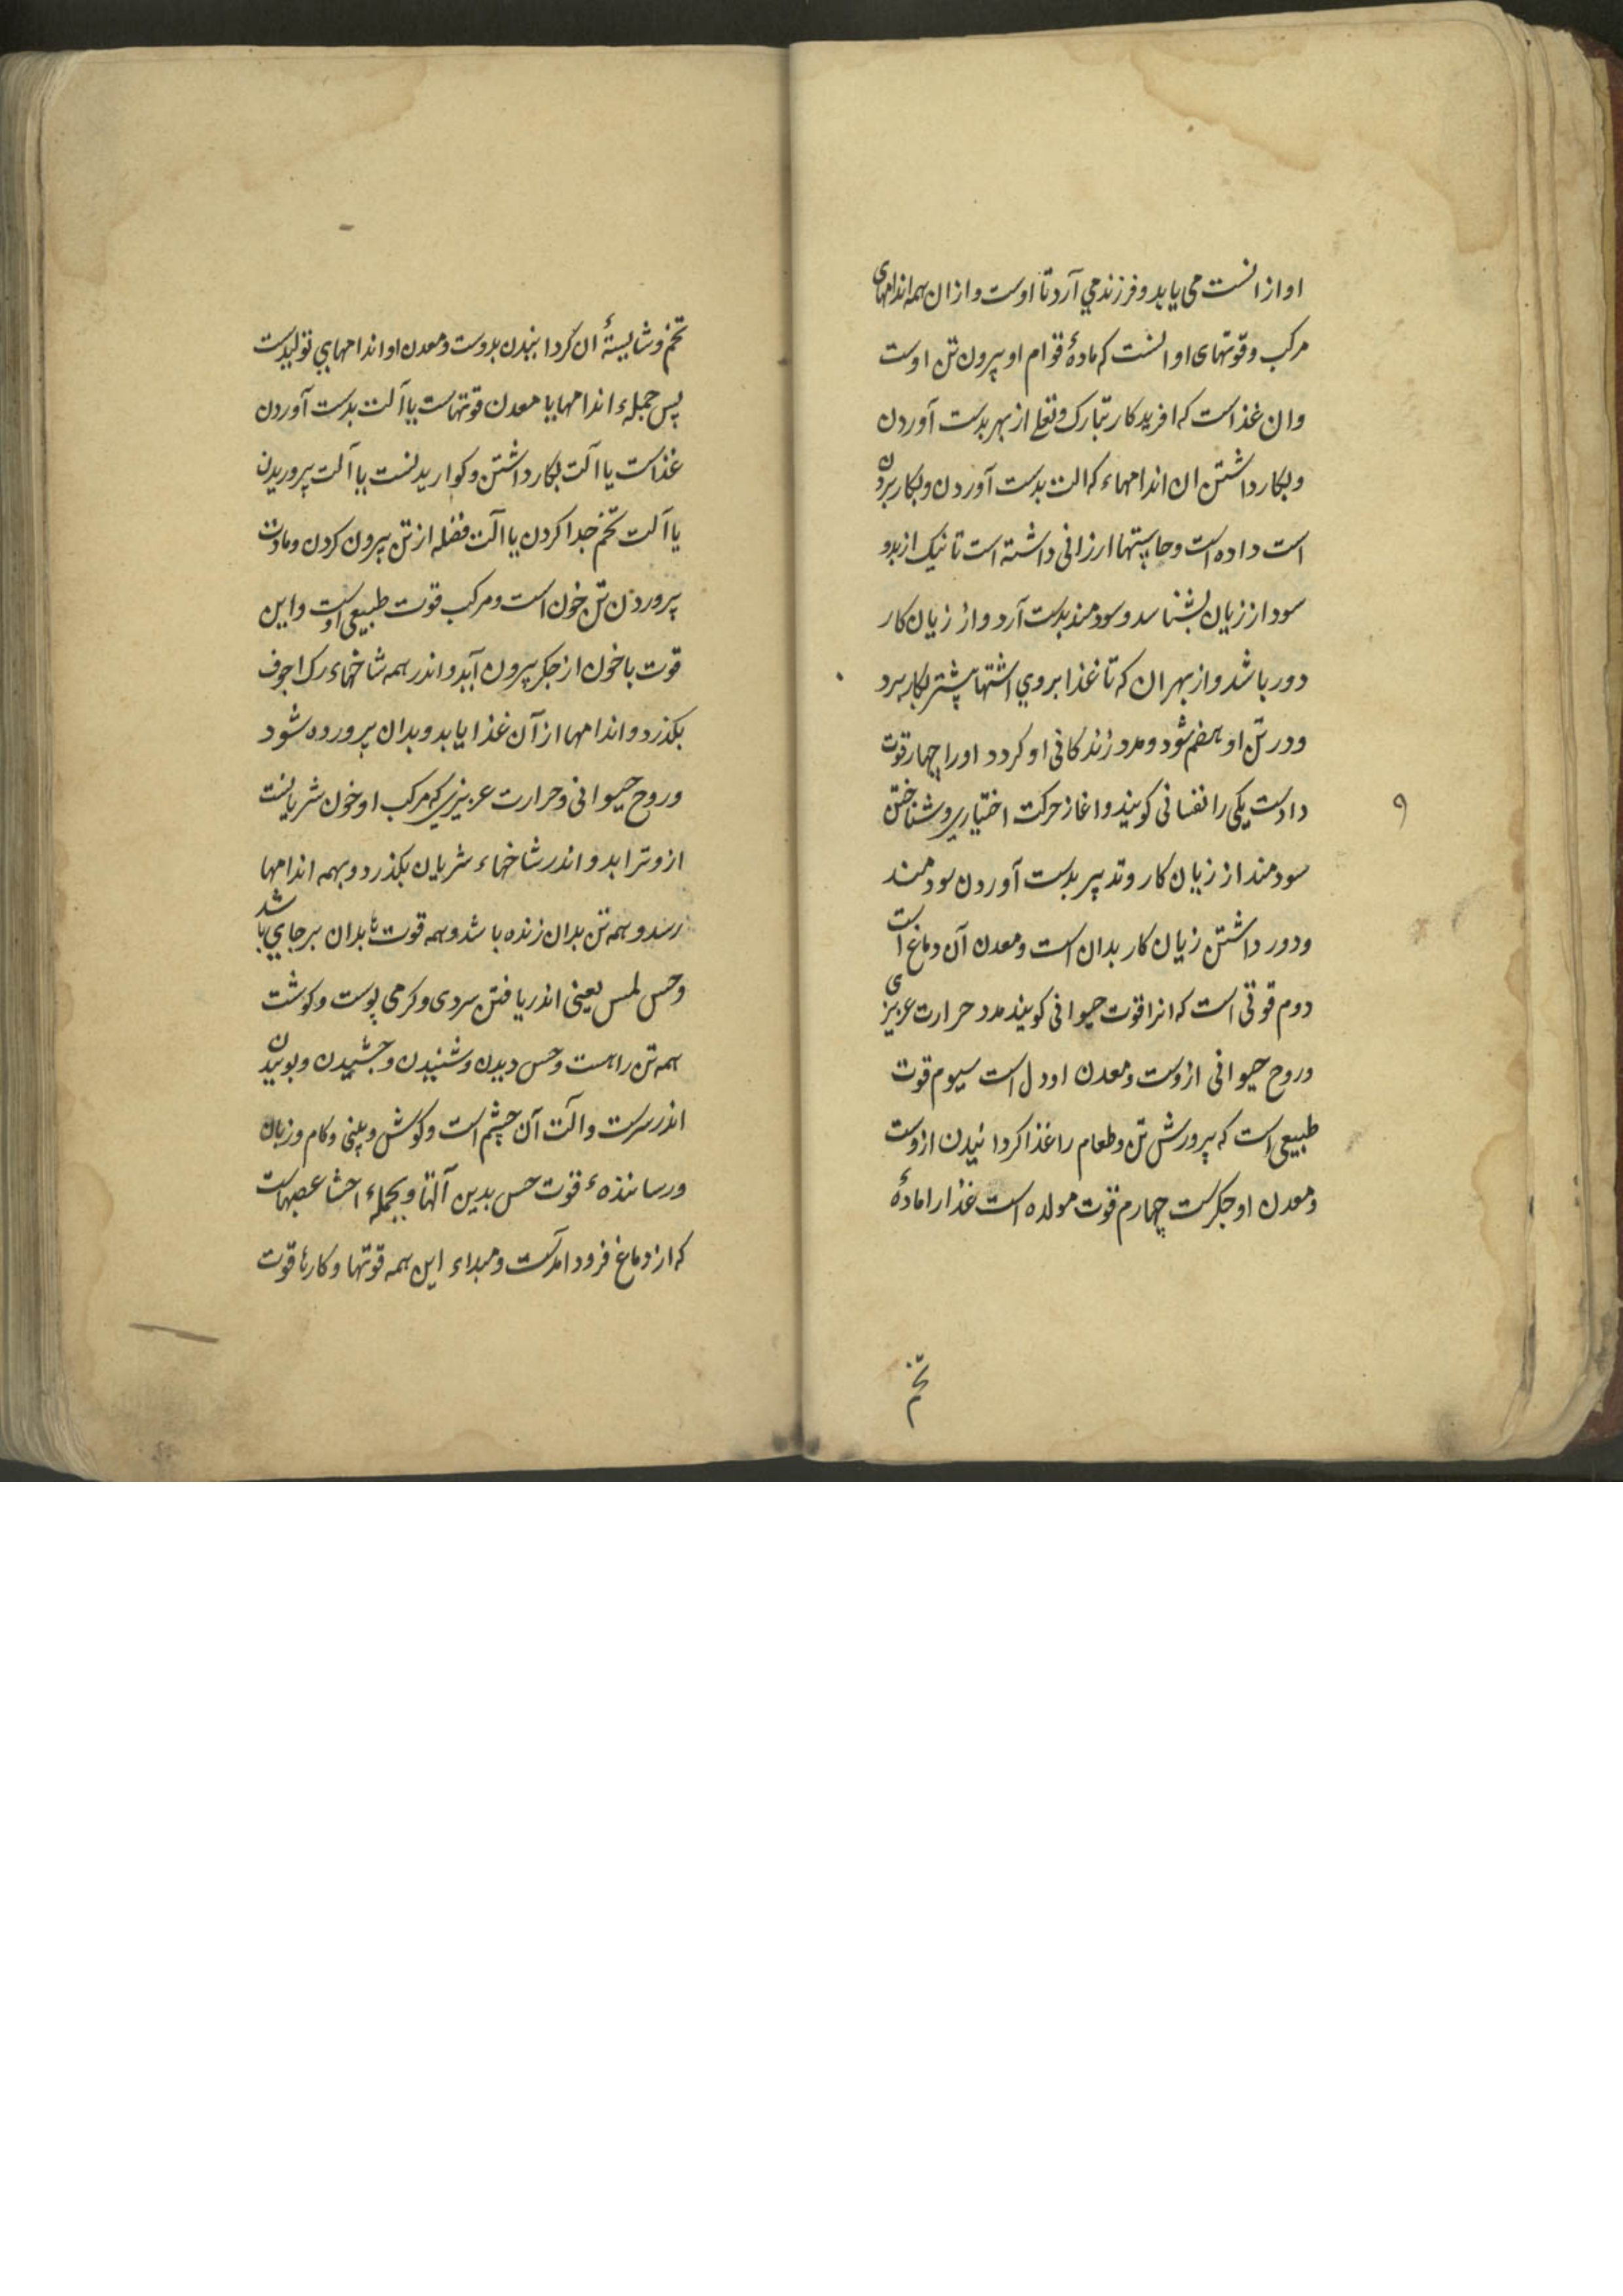 او ازانست می یابد و فرزند می آرد تا اوست و ازان همه اندامهای
مرکب و قوتهای او انست که مادۀ قوام او بیرون تن اوست
وان غذاست که افریدکار تبارک و تعلی از بهر بدست آوردن
و بکار داشتن ان اندامهاء که الت بدست آوردن و بکار بردن
است داده است و حاستها ارزانی داشته است تا نیک از بد و
سود از زیان بشناسد و سودمند بدست آرد و از زیان کار
دور باشد و از بهر ان که تا غذا بروی اشتها پیشتر بکار برد
و در تن او هضم شود و مدد زندکانی او کردد او را چهار قوت
دادست یکی را نفسانی کویند و اغاز حرکت اختیاری و شناختن
سودمند از زیان کار و تدبیر بدست آوردن سودمند
و دور داشتن زیان کار بدان است و معدن آن دماغ است
دوم قوتی است که انرا قوت حیوانی کویند مدد حرارت عزیزی
و روح حیوانی ازوست و معدن او دل است سیوم قوت
طبیعی است که پرورش تن و طعام را غذا کردانیدن ازوست
و معدن او جکرست چهارم قوت مولده است غذا را مادۀ
تخم
۹
تخم و شایستۀ ان کردانیدن بدوست و معدن او اندامهای تولیدست
پس جملهء اندامها یا معدن قوتهاست یا آلت بدست آوردن
غذاست یا الت بکار داشتن و کواریدنست یا آلت پروریدن
یا آلت تخم جدا کردن یا الت فضله از تن بیرون کردن و مادت
پروردن تن خون است و مرکب قوت طبیعی اوست و این
قوت با خون از جکر بیرون آید و اندر همه شاخهاء رک اجوف
بکذرد و اندامها از آن غذا یابد و بدان پرورده شود
و روح حیوانی و حرارت عزیزی که مرکب او خون شریانست
ازو تراید و اندر شاخهاء شریان بکذرد و بهمه اندامها
رسد و همه تن بدان زنده باشد و همه قوت ها بدان برجای باشد
و حس لمس یعنی اندریافتن سردی و کرمی پوست و کوشت
همه تن راهست و حس دیدن و شنیدن و چشیدن و بوییدن
اندر سرست و الت آن چشم است و کوش و بینی و کام و زبان
و رسانندهء قوت حس بدین آلتها و بجملهء احشا عصبهاست
که از دماغ فرود امدست و مبداء این همه قوتها و کارها قوت